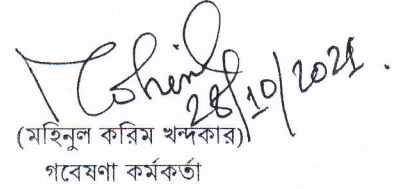 Mohinul
28/10/2021.
(মহিনুল করিম খন্দকার)
গবেষণা কর্মকর্তা